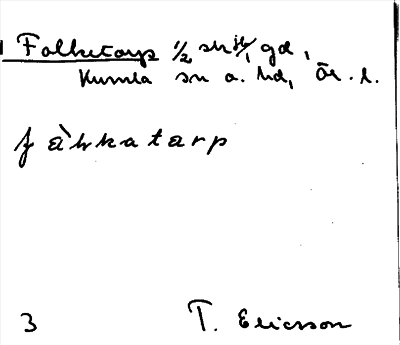 Falketorp 1/2 sk jb/1 gd,
Kumla sn o. hd, Ör. l.
fàlkatårp
3 T. Ericsson